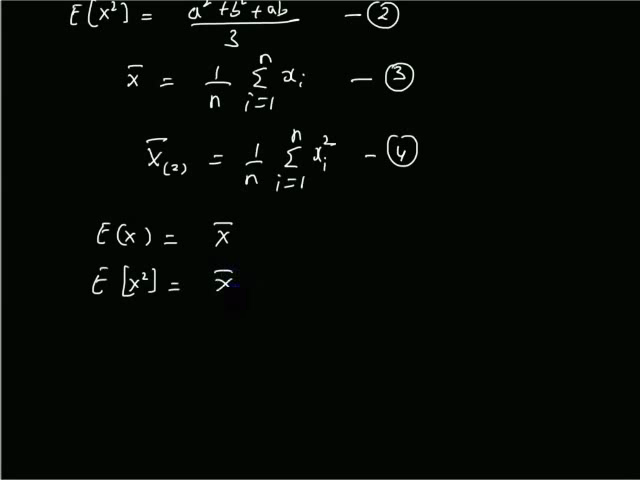 E[x²] = a²+b²+ab / 3 - ②
x̅ = 1/n Σ_{i=1}^{n} xᵢ - ③
x̅₍₂₎ = 1/n Σ_{i=1}^{n} xᵢ² - ④
E(x) = x̅
E[x²] = x̅